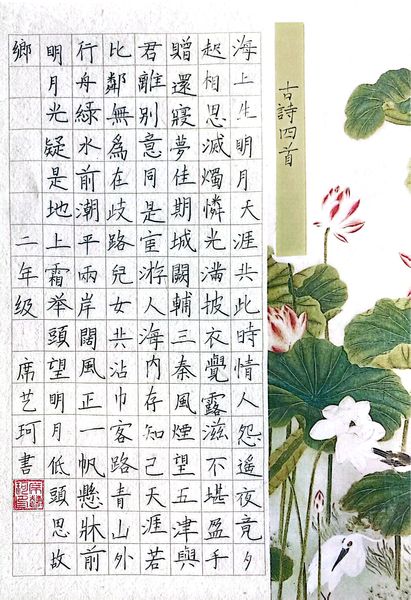 古詩四首
海上生明月天涯共此時情人怨遙夜竟夕
起相思滅燭憐光滿披衣覺露滋不堪盈手
贈還寢夢佳期城闕輔三秦風煙望五津與
君離別意同是宦游人海内存知己天涯若
比鄰無為在歧路兒女共沾巾客路青山外
行舟綠水前潮平兩岸闊風正一帆懸牀前
明月光疑是地上霜举頭望明月低頭思故
鄉 二年级 席艺珂書